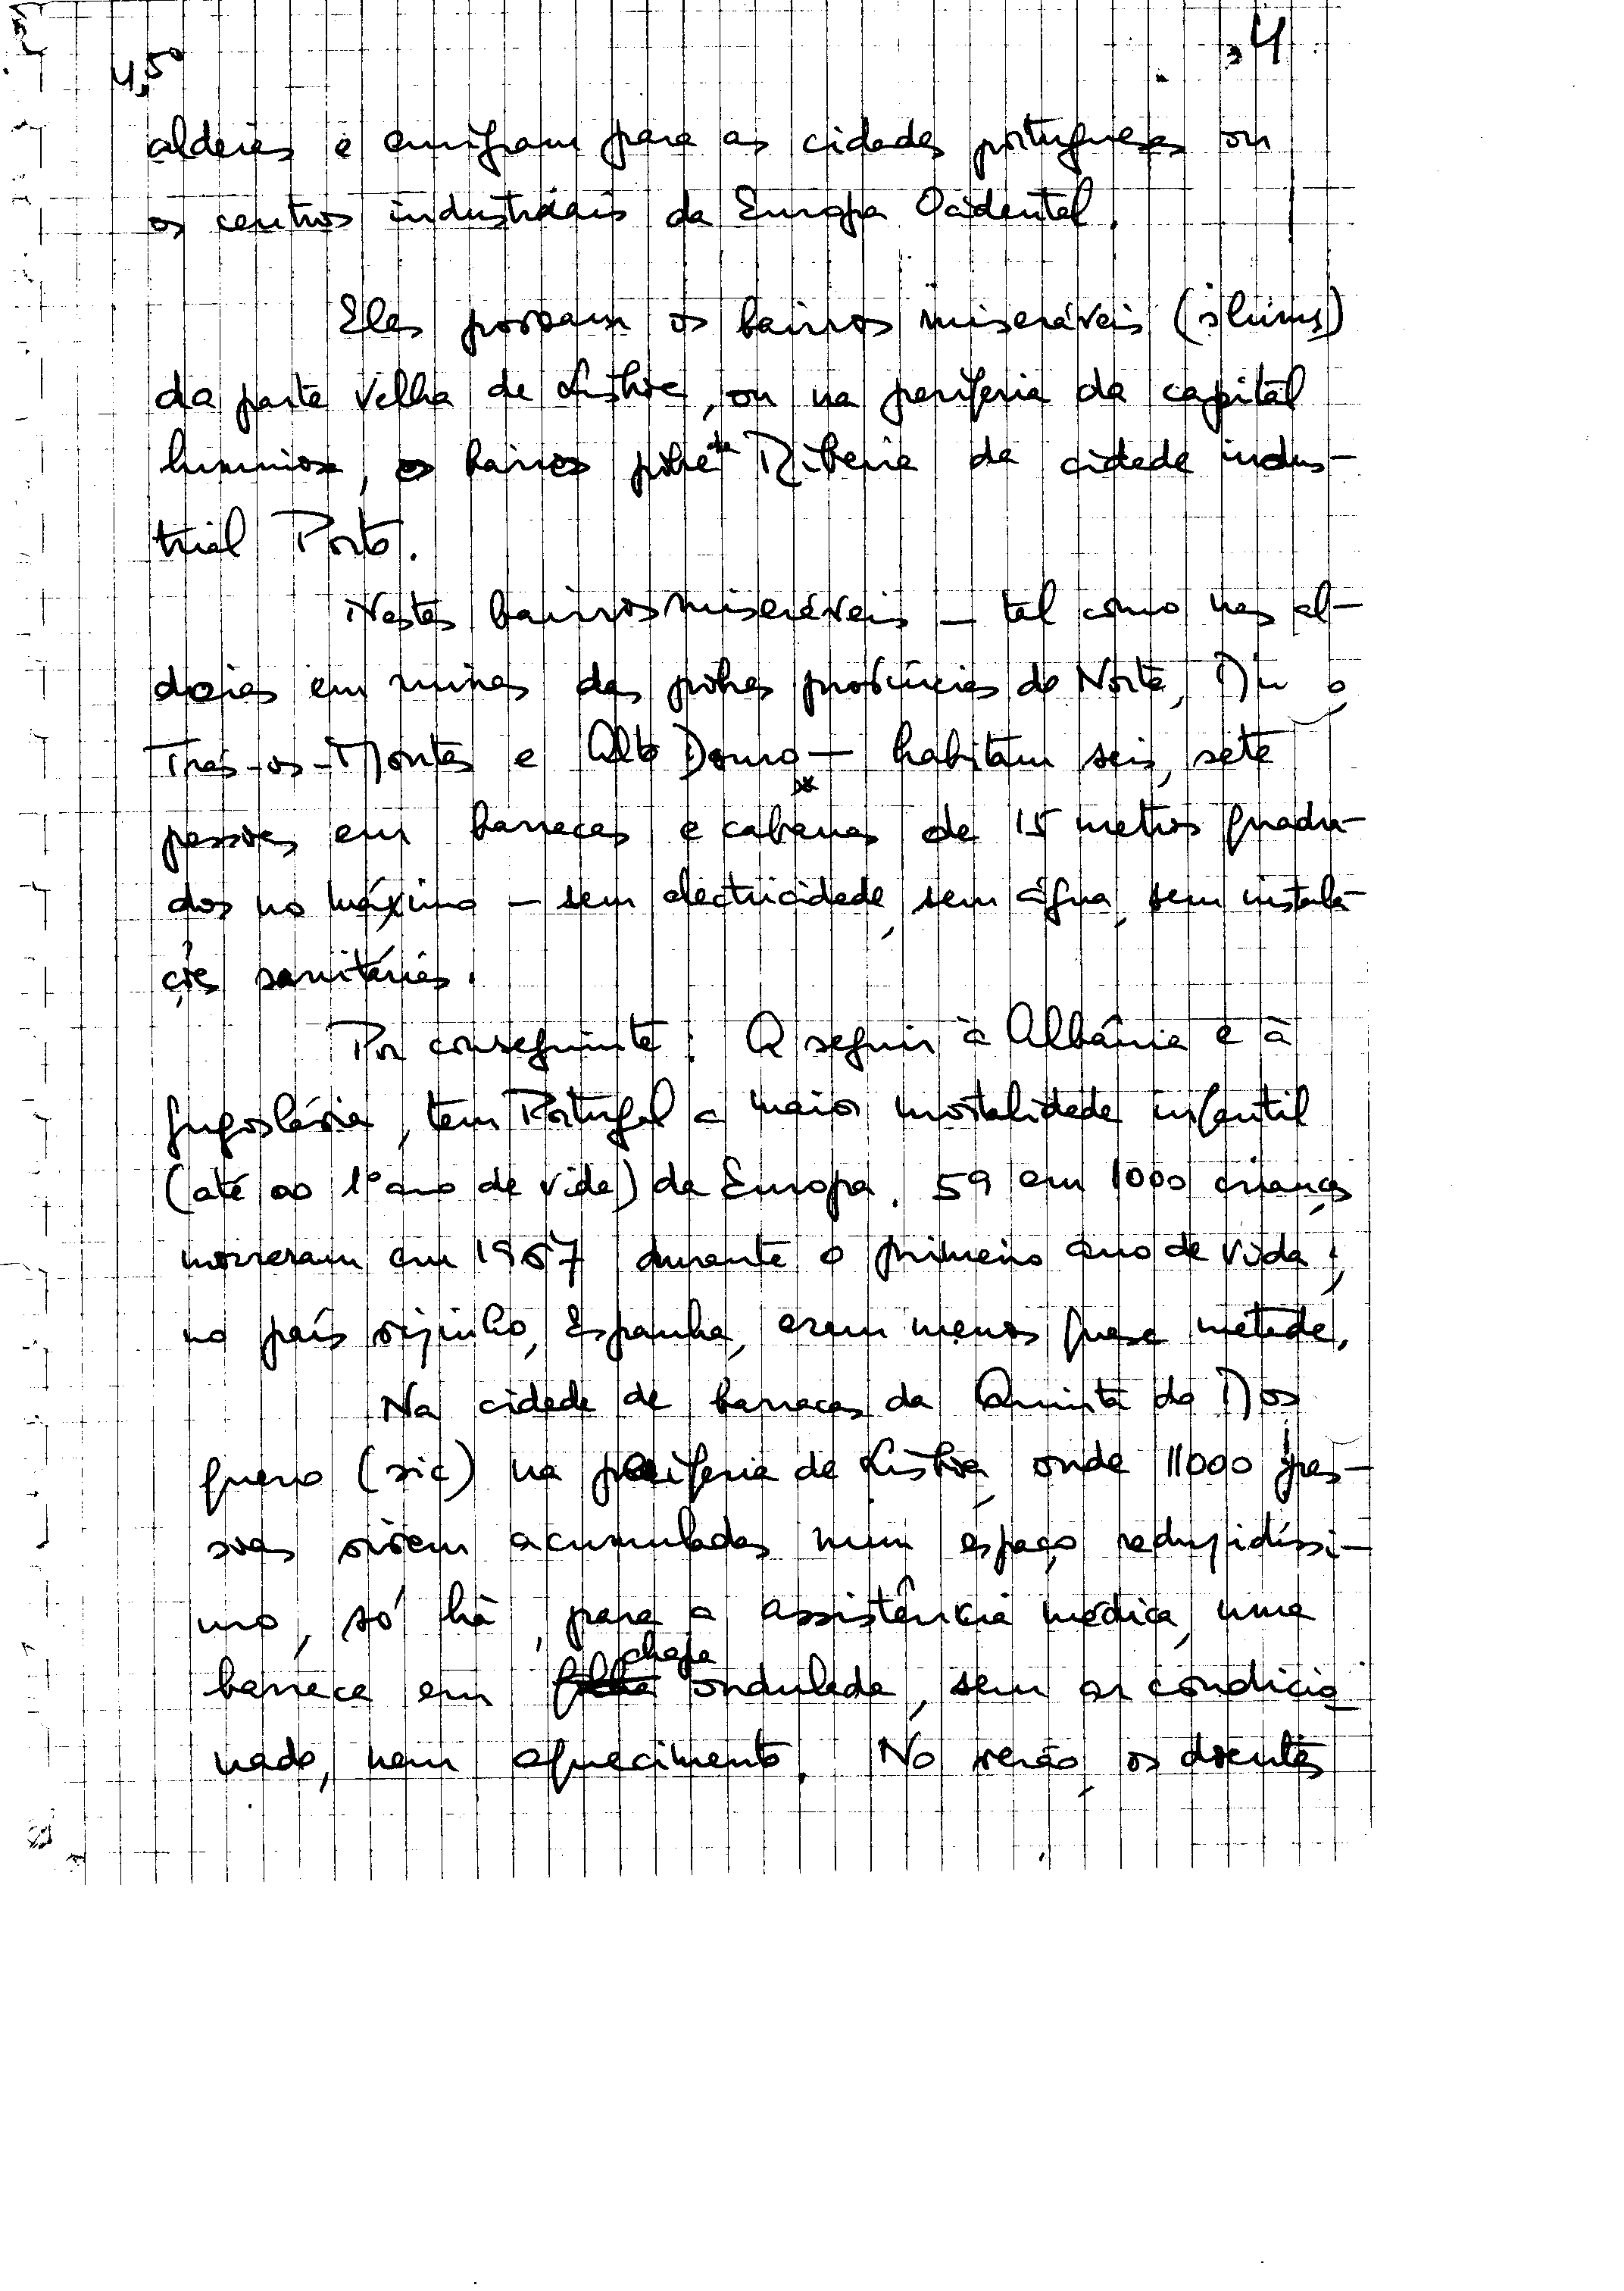 4,5º ,4
aldeias e emigram para as cidades portuguesas ou
os centros industriais da Europa Ocidental.
Eles povoam os bairros miseráveis (slums)
da parte velha de Lisboa, ou na periferia da capital
luminosa, o bairro pobre da Ribeira da cidade indus-
trial Porto.
Nestes bairros miseráveis – tal como nas al-
deias em ruinas das pobres províncias do Norte,
Trás-os-Montes e Alto Douro – habitam seis, sete
pessoas em barracas e cabanas de 15 metros quadra-
dos no máximo – sem electricidade, sem água, sem instala-
ções sanitárias.
Por conseguinte: A seguir à Albânia e à
Jugoslávia, tem Portugal a maior mortalidade infantil
(até ao 1º ano de vida) da Europa. 59 em 1000 crianças
morreram em 1967 durante o primeiro ano de vida;
no país vizinho, Espanha, eram menos quase metade.
Na cidade de barracas da Quinta do Mos
queiro (sic) na periferia de Lisboa, onde 11000 pes-
soas vivem acumuladas num espaço reduzidíssi-
mo, só há, para a assistência médica, uma
barraca em chapa ondulada, sem ar condicio
nado, nem aquecimento. No verão, os doentes